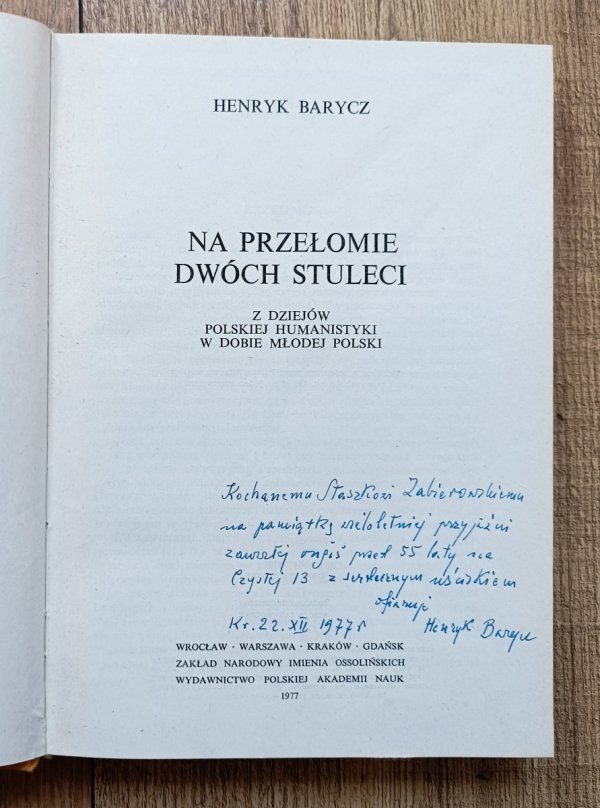 HENRYK BARYCZ
NA PRZEŁOMIE
DWÓCH STULECI
Z DZIEJÓW
POLSKIEJ HUMANISTYKI
W DOBIE MŁODEJ POLSKI
Kochanemu Staszkowi Zabierowskiemu
na pamiątkę wieloletniej przyjaźni
zawartej ongiś przed 55 laty na
Czystej 13 z serdecznym uściskiem
ofiaruje
Kr. 22. XII 1977 r Henryk Barycz
WROCŁAW · WARSZAWA · KRAKÓW · GDAŃSK
ZAKŁAD NARODOWY IMIENIA OSSOLIŃSKICH
WYDAWNICTWO POLSKIEJ AKADEMII NAUK
1977